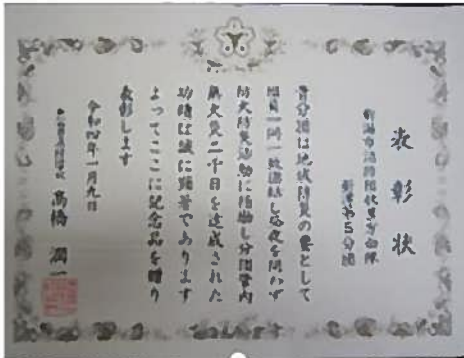 表彰状
新潟市消防団秋葉方面隊
新津第5分団
貴分団は地域防災の要として
団員一同一致団結し昼夜を問わず
防火防災活動に精励し分団管内
無火災二千日を達成された
功績は誠に顕著であります
よってここに記念品を贈り
表彰します
令和四年一月九日
髙橋 潤一